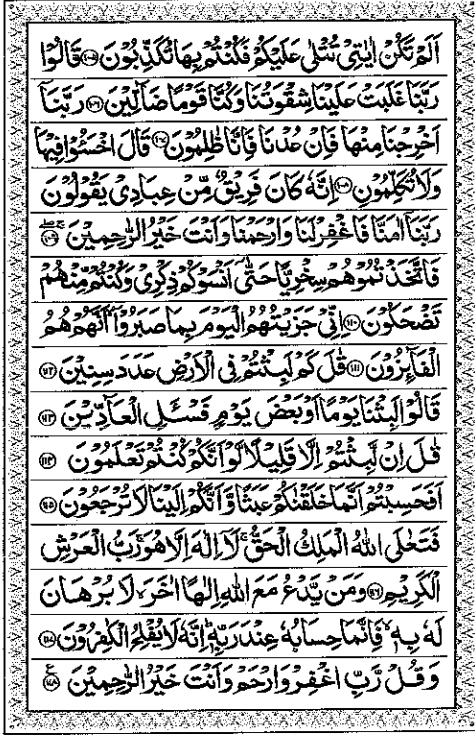 اَلَمْ تَكُنْ اٰيٰتِيْ تُتْلٰى عَلَيْكُمْ فَكُنْتُمْ بِهَا تُكَذِّبُوْنَ ۝۱۰۵ قَالُوْا
رَبَّنَا غَلَبَتْ عَلَيْنَا شِقْوَتُنَا وَكُنَّا قَوْمًا ضَآلِّيْنَ ۝۱۰۶ رَبَّنَآ
اَخْرِجْنَا مِنْهَا فَاِنْ عُدْنَا فَاِنَّا ظٰلِمُوْنَ ۝۱۰۷ قَالَ اخْسَـُٔوْا فِيْهَا
وَلَا تُكَلِّمُوْنِ ۝۱۰۸ اِنَّهٗ كَانَ فَرِيْقٌ مِّنْ عِبَادِيْ يَقُوْلُوْنَ
رَبَّنَآ اٰمَنَّا فَاغْفِرْ لَنَا وَارْحَمْنَا وَاَنْتَ خَيْرُ الرّٰحِمِيْنَ ۝۱۰۹
فَاتَّخَذْتُمُوْهُمْ سِخْرِيًّا حَتّٰٓى اَنْسَوْكُمْ ذِكْرِيْ وَكُنْتُمْ مِّنْهُمْ
تَضْحَكُوْنَ ۝۱۱۰ اِنِّيْ جَزَيْتُهُمُ الْيَوْمَ بِمَا صَبَرُوْٓا اَنَّهُمْ هُمُ
الْفَآئِزُوْنَ ۝۱۱۱ قٰلَ كَمْ لَبِثْتُمْ فِي الْاَرْضِ عَدَدَ سِنِيْنَ ۝۱۱۲
قَالُوْا لَبِثْنَا يَوْمًا اَوْ بَعْضَ يَوْمٍ فَسْـَٔلِ الْعَآدِّيْنَ ۝۱۱۳
قٰلَ اِنْ لَّبِثْتُمْ اِلَّا قَلِيْلًا لَّوْ اَنَّكُمْ كُنْتُمْ تَعْلَمُوْنَ ۝۱۱۴
اَفَحَسِبْتُمْ اَنَّمَا خَلَقْنٰكُمْ عَبَثًا وَّاَنَّكُمْ اِلَيْنَا لَا تُرْجَعُوْنَ ۝۱۱۵
فَتَعٰلَى اللّٰهُ الْمَلِكُ الْحَقُّ ۚ لَآ اِلٰهَ اِلَّا هُوَ ۚ رَبُّ الْعَرْشِ
الْكَرِيْمِ ۝۱۱۶ وَمَنْ يَّدْعُ مَعَ اللّٰهِ اِلٰهًا اٰخَرَ ۙ لَا بُرْهَانَ
لَهٗ بِهٖ ۙ فَاِنَّمَا حِسَابُهٗ عِنْدَ رَبِّهٖ ؕ اِنَّهٗ لَا يُفْلِحُ الْكٰفِرُوْنَ ۝۱۱۷
وَقُلْ رَّبِّ اغْفِرْ وَارْحَمْ وَاَنْتَ خَيْرُ الرّٰحِمِيْنَ ۝۱۱۸